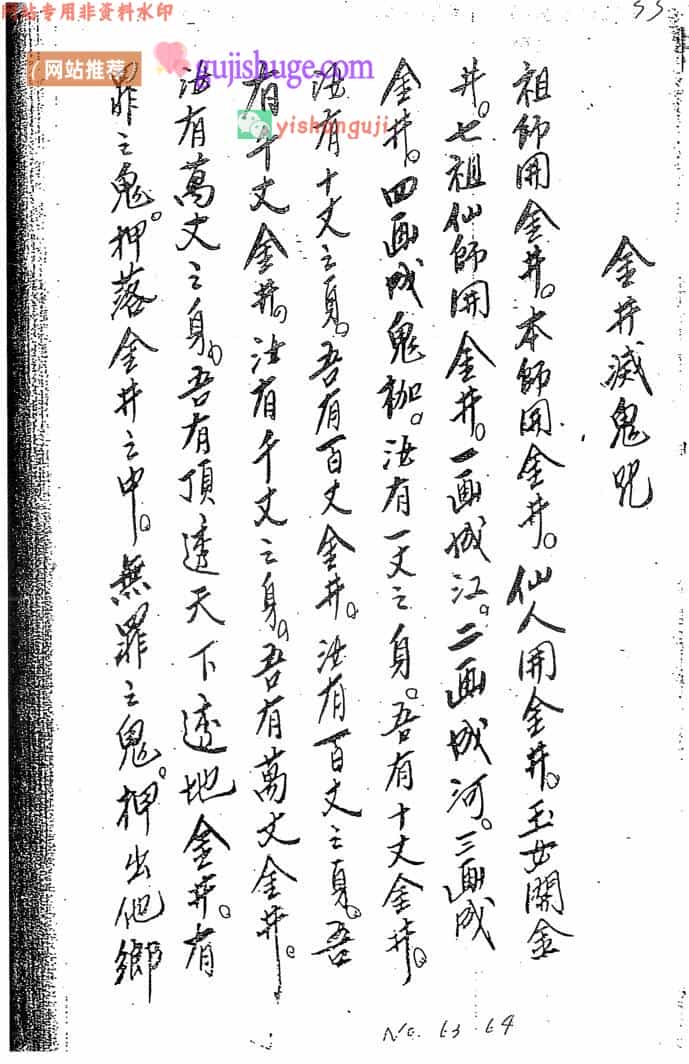 网站专用非资料水印
33
网站推荐
gujishuge.com
yishanguji
金井滅鬼咒
祖師開金井。本師開金井。仙人開金井。玉女開金
井。七祖仙師開金井。一画城江。二画城河。三画成
金井。四画成鬼枷。汝有一丈之身。吾有十丈金井。
汝有十丈之身。吾有百丈金井。汝有百丈之身。吾
有千丈金井。汝有千丈之身。吾有萬丈金井。
汝有萬丈之身。吾有頂透天下透地金井。有
罪之鬼。押落金井之中。無罪之鬼。押出他鄉
No. 63 64